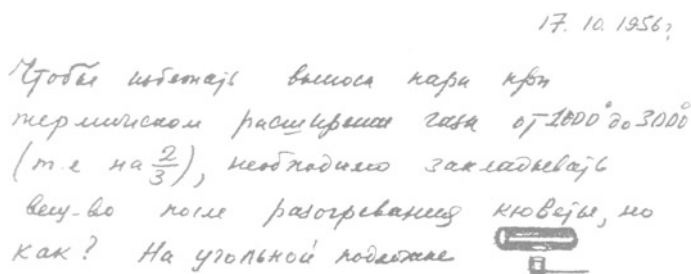 17. 10. 1956г
Чтобы избежать выноса пара при
термическом расширении газа от 1000° до 3000°
(т.е на 2/3), необходимо закладывать
вещ-во после разогревания кюветы, но
как? На угольной подложке